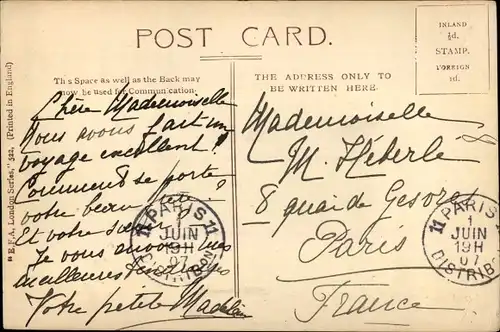 POST CARD.
INLAND
½d.
STAMP.
FOREIGN
1d.
This Space as well as the Back may
now be used for Communication.
THE ADDRESS ONLY TO
BE WRITTEN HERE.
E.F.A. London Series," 522, (Printed in England)
Chère Mademoiselle
Nous avons fait un
voyage excellent!
Comment se porte
votre beau
Et votre sœur?
Je vous envoie mes
meilleures
Votre petite Madeleine
Mademoiselle
M. Héberlé
8 quai de Gesvres
Paris
France
11 PARIS 11
1
JUIN
19H
07
DISTRIBON
11 PARIS
1
JUIN
19H
07
DISTRIBON